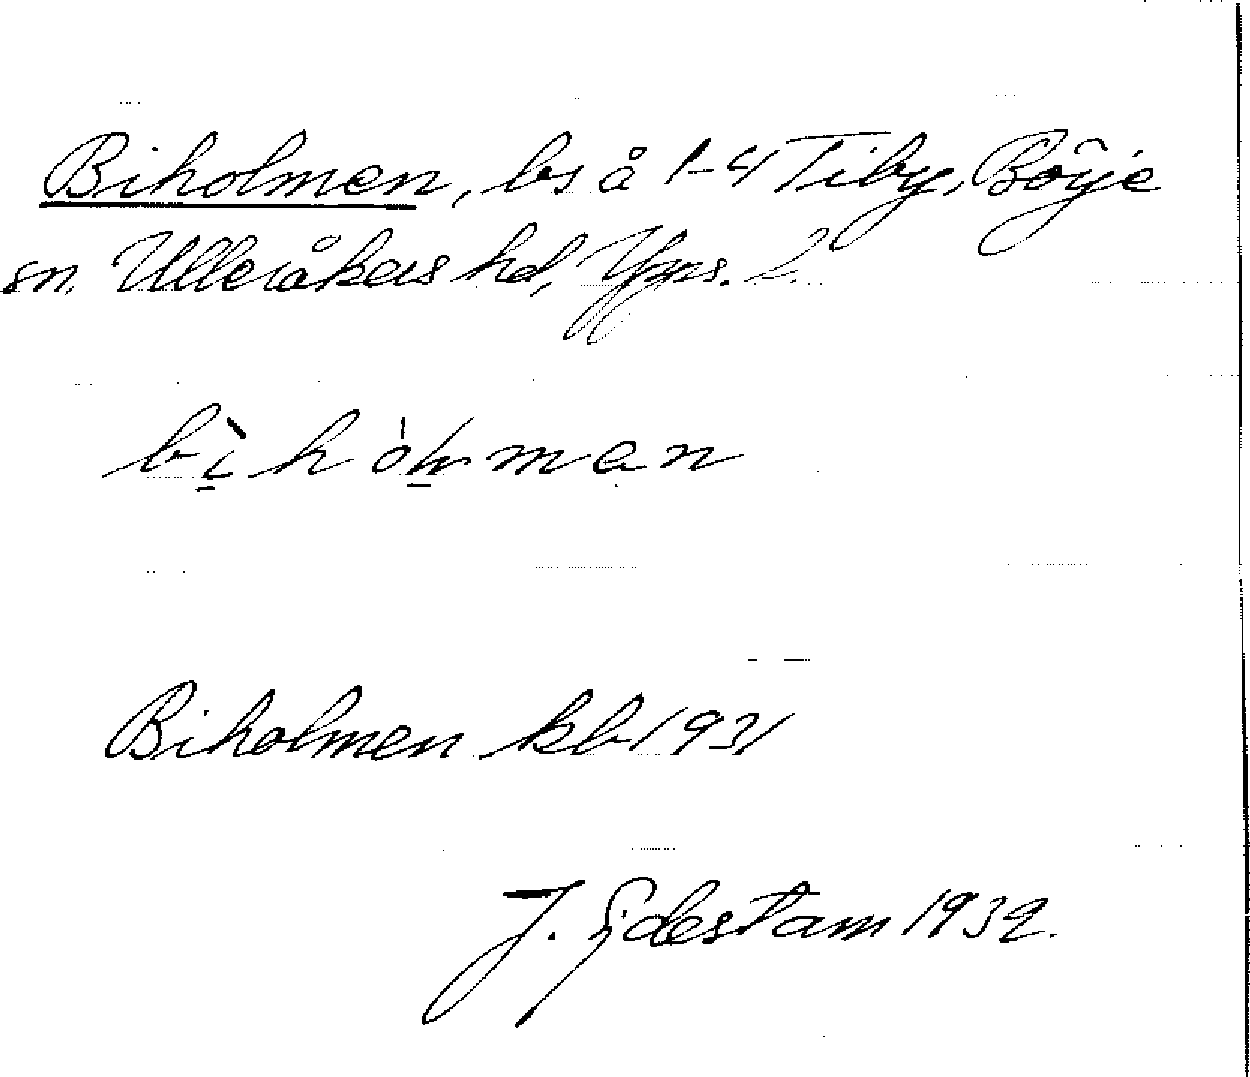 Biholmen, bs å 1-4 Tiby, Böje
sn, Ulleråkers hd, Upps. L.
bì hòlman
Biholmen kb 1931
J. Sjdestam 1932.